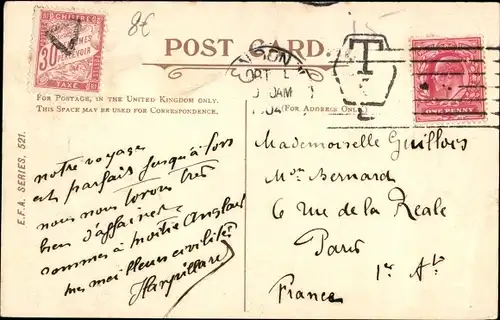 8€
CHIFFRE
30
PERCEVOIR
TAXE
POST CARD.
LONDON
OCT
AM
04
T
ONE PENNY
FOR POSTAGE, IN THE UNITED KINGDOM ONLY,
THIS SPACE MAY BE USED FOR CORRESPONDENCE.
(FOR ADDRESS ONLY.)
E.F.A. SERIES. 521.
notre voyage
est parfait jusqu'à lors
nous nous tirons très
bien d'affaire
sommes à moitié Anglais
mes meilleures civilités
Harpillard
Mademoiselle Guillois
Mon Bernard
6 rue de la Reale
Paris
1er At
France